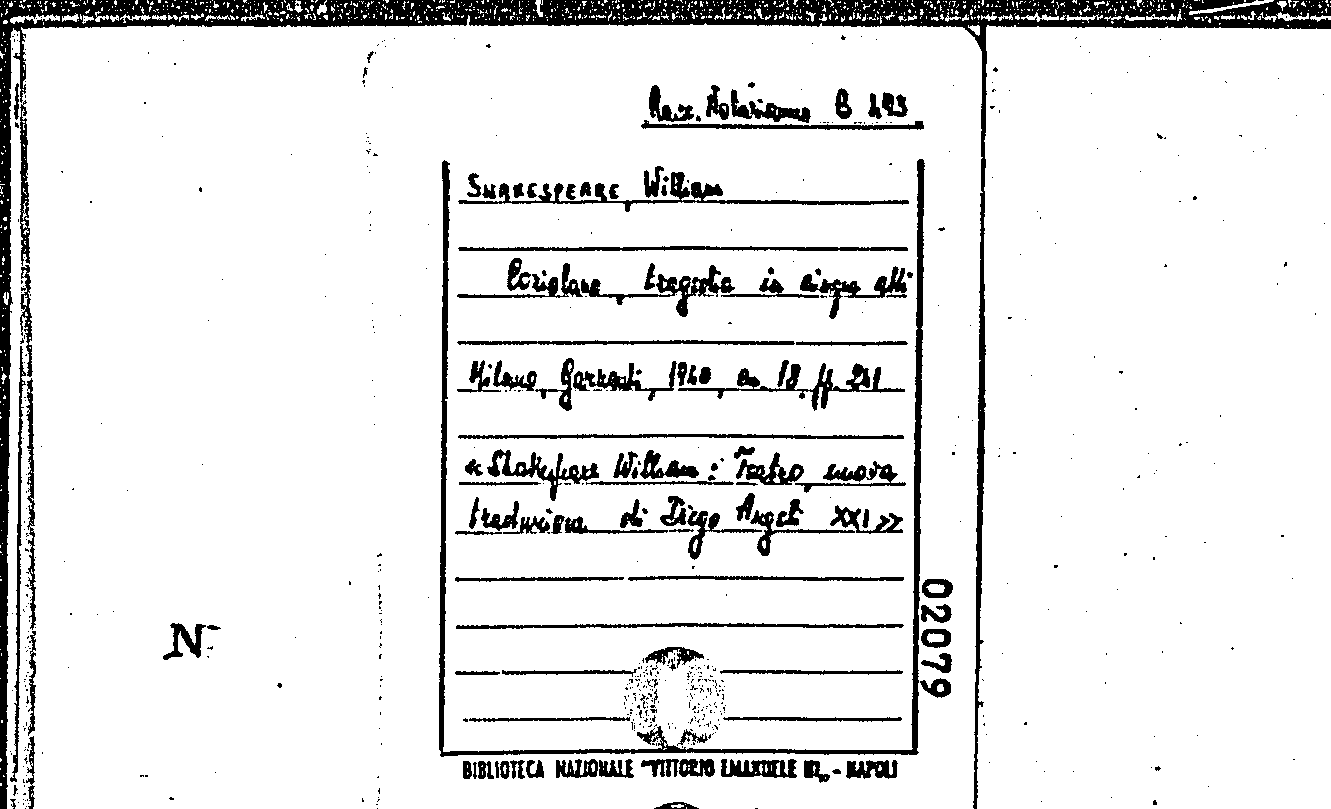 Racc. Notarianni B 493
SHAKESPEARE, William
Coriolano, tragedia in cinque atti
Milano, Garzanti, 1940, in 18, pp. 241
«Shakespeare William: Teatro, nuova
traduzione di Diego Angeli XXI»
02079
N
BIBLIOTECA NAZIONALE "VITTORIO EMANUELE III„ - NAPOLI